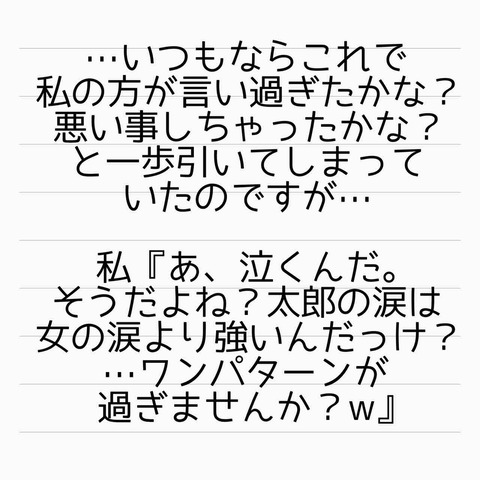 …いつもならこれで
私の方が言い過ぎたかな？
悪い事しちゃったかな？
と一歩引いてしまって
いたのですが…
私『あ、泣くんだ。
そうだよね？太郎の涙は
女の涙より強いんだっけ？
…ワンパターンが
過ぎませんか？w』